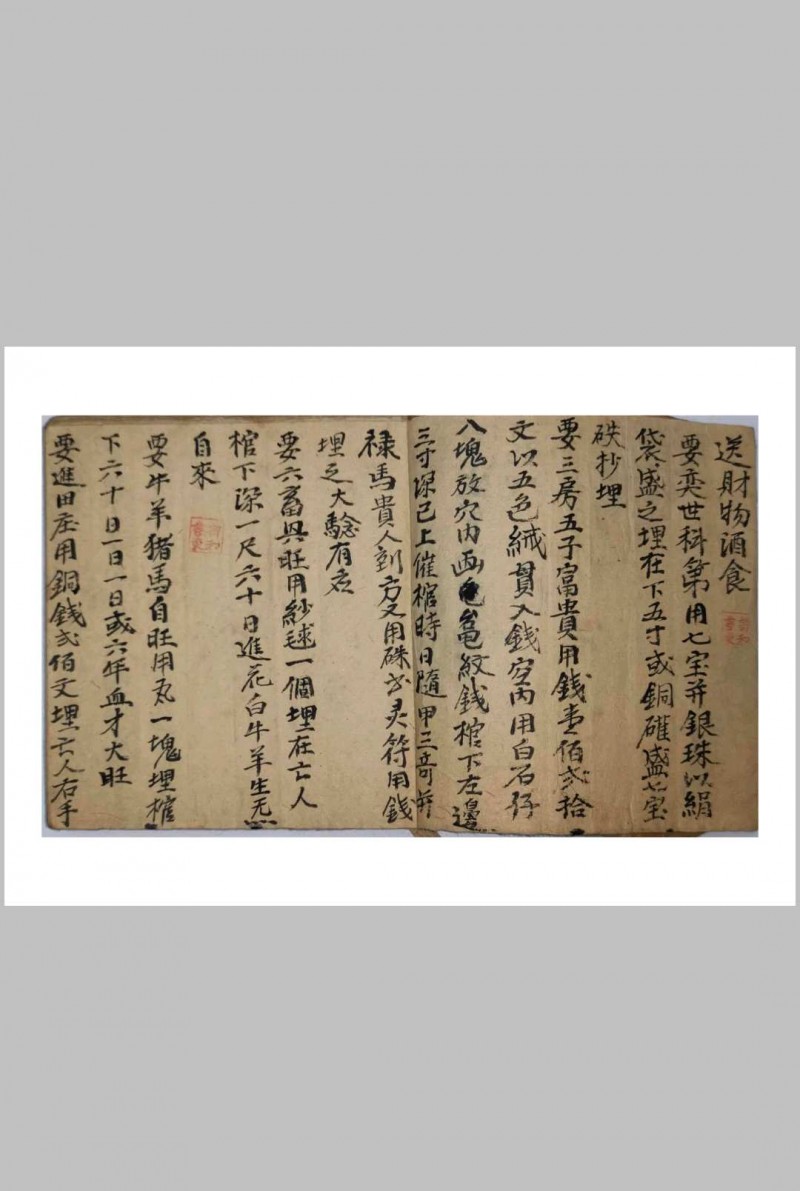 送財物酒食
要奕世科第用七宝并銀珠以絹
袋盛之埋在下五寸或銅礶盛七宝
硃抄埋
要三房五子富貴用錢壹佰弍拾
文以五色絨貫入錢空內用白石仔
八塊放穴內画龜紋錢棺下左邊
三寸深已上催棺時日隨甲三奇并
禄馬貴人到方又用硃書灵符用錢
埋之大驗有
要六畜兴旺用紗毬一個埋在亡人
棺下深一尺六十日進花白牛羊生炁
自來
要牛羊猪馬自旺用瓦一塊埋棺
下六十日一日一日或六年血才大旺
要進田庄用銅錢弍佰文埋亡人右手